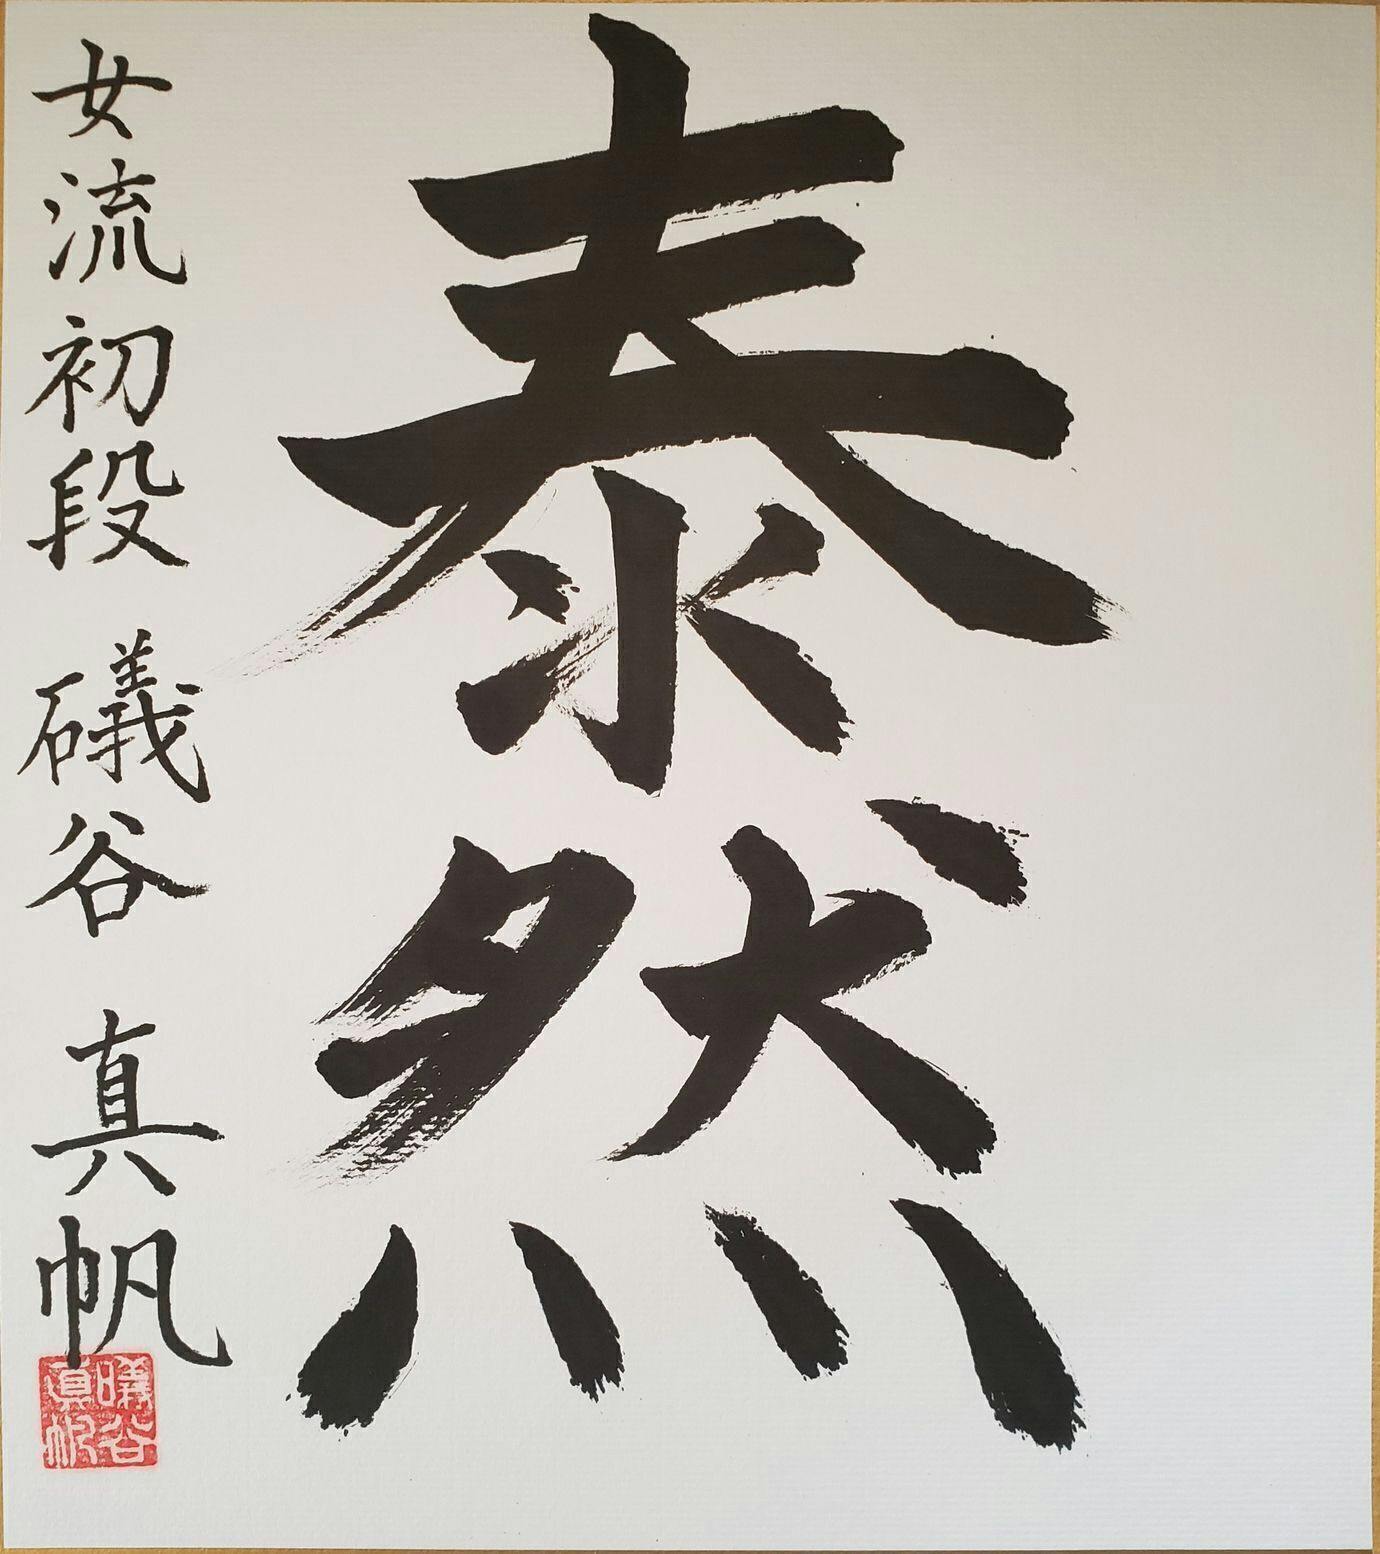 泰然
女流初段 礒谷 真帆
礒谷真帆